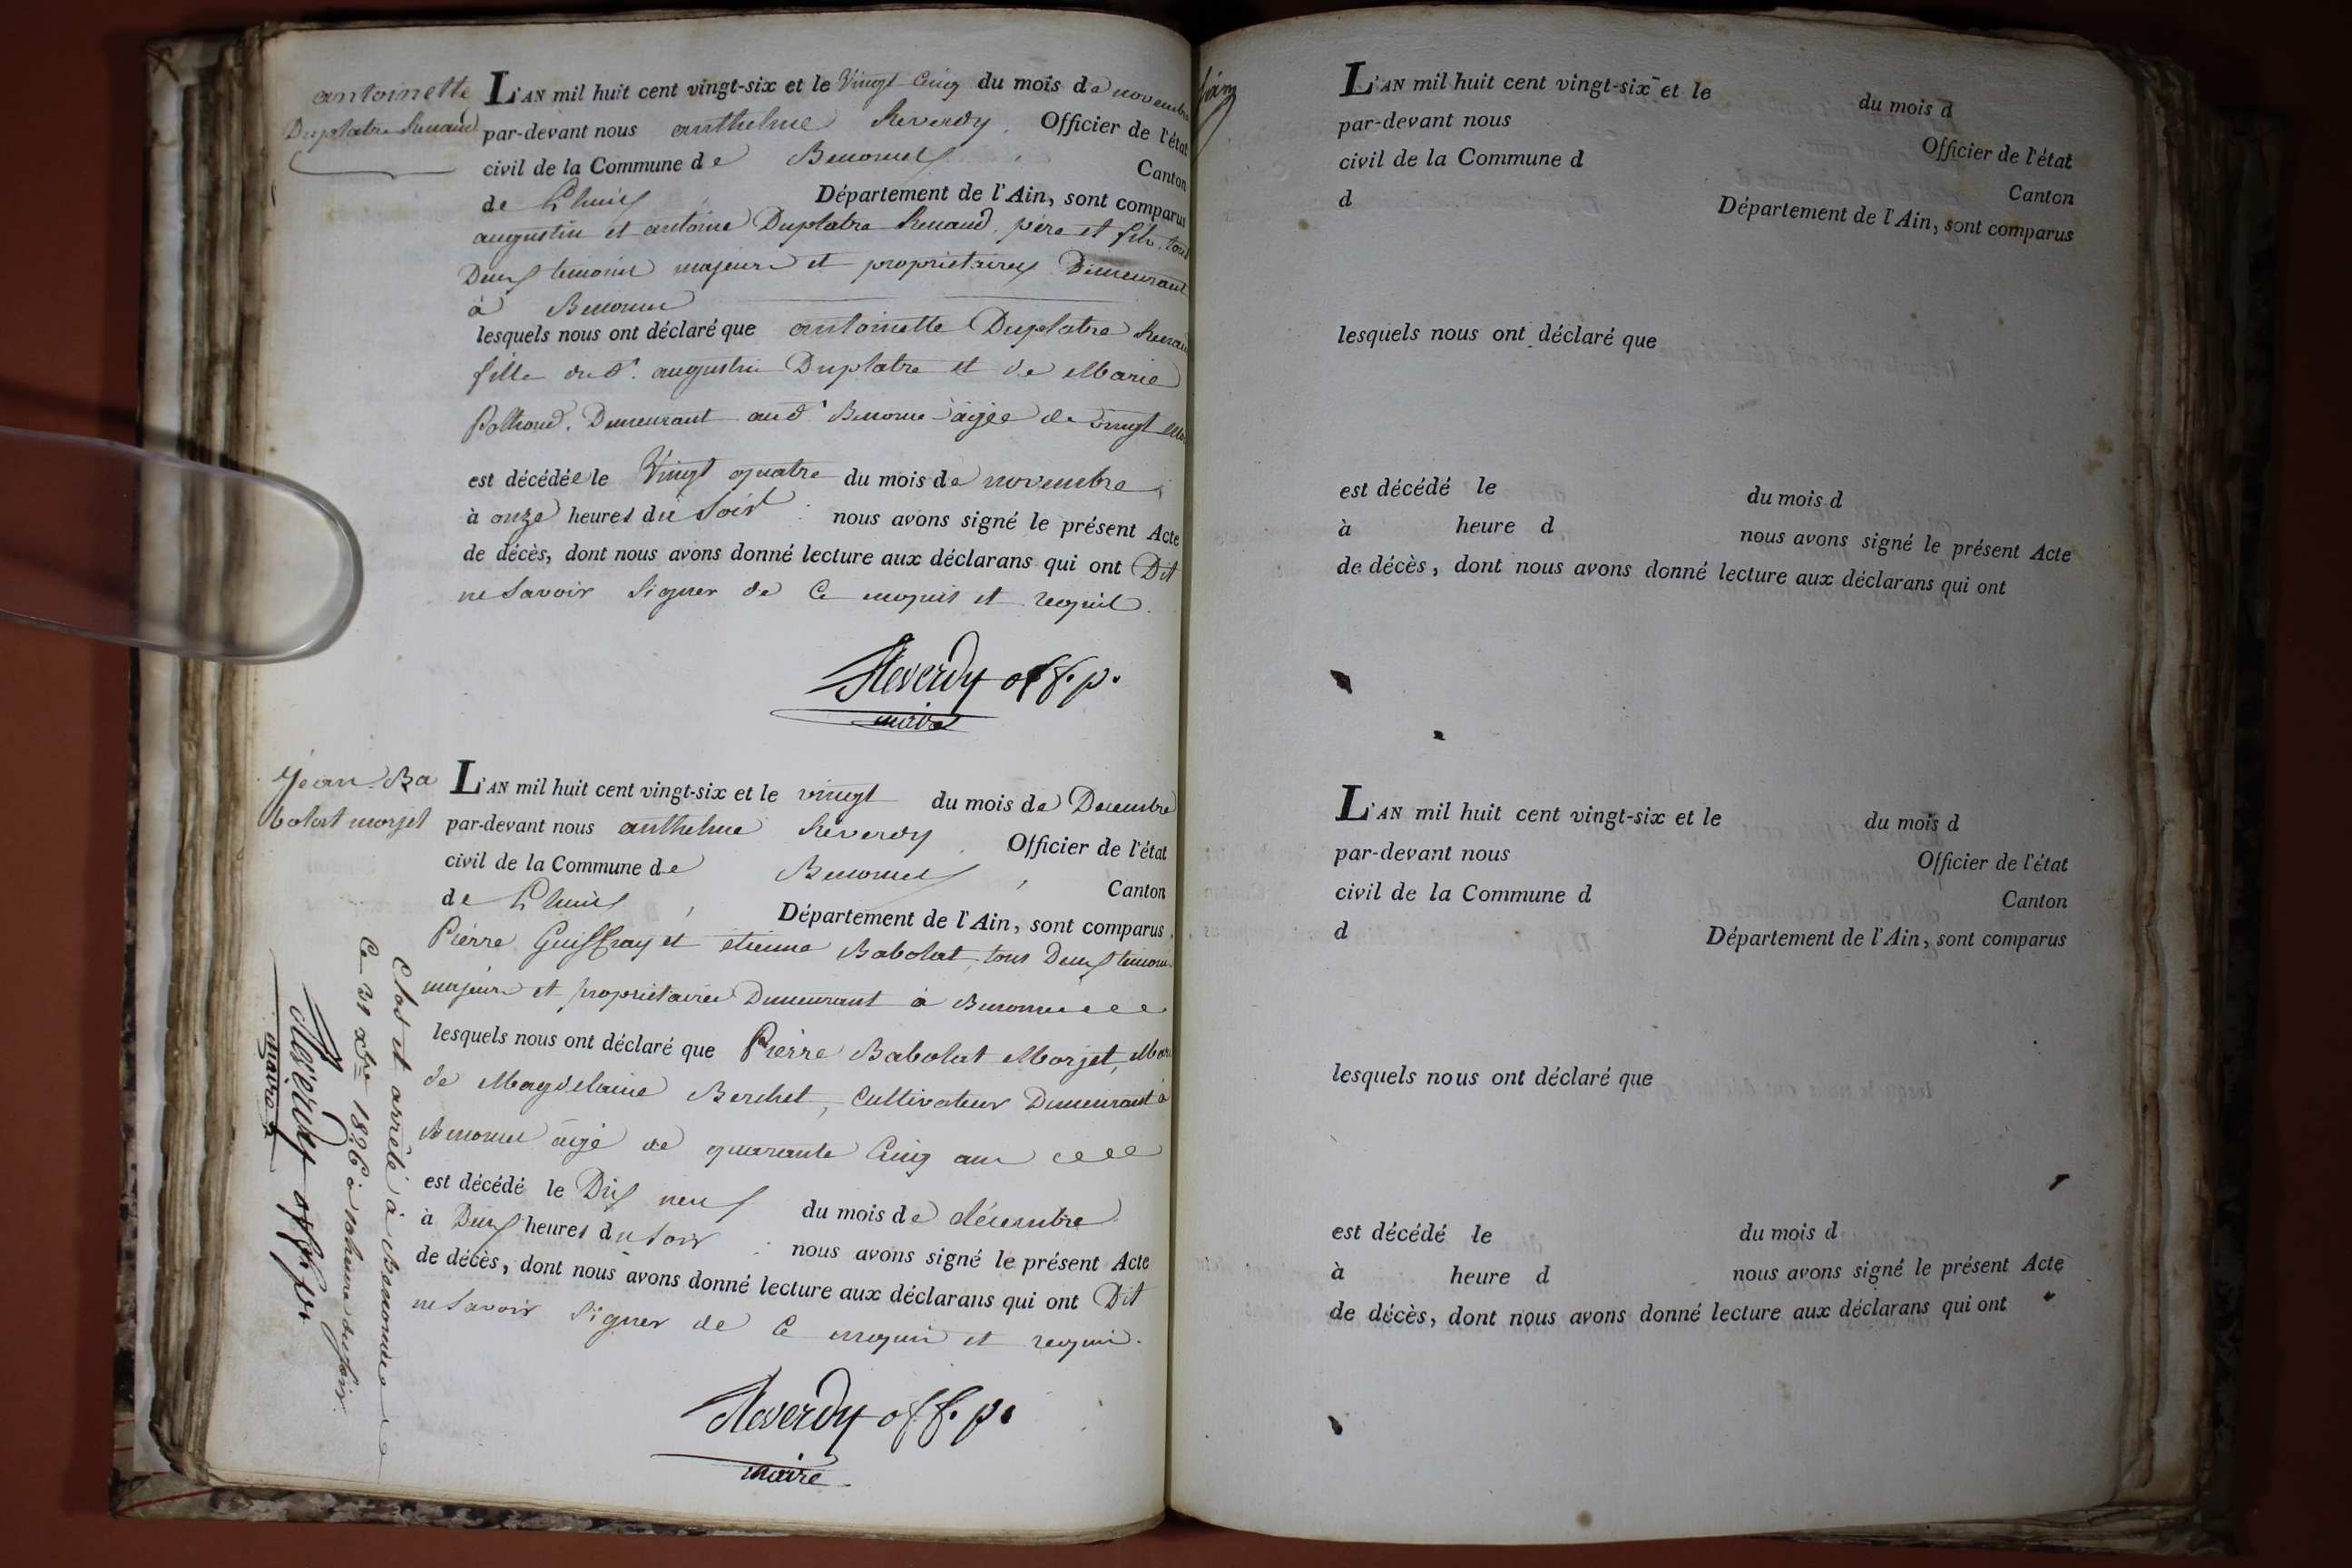 antoinette
Duplatre Renaud
L'AN mil huit cent vingt-six et le Vingt Cinq du mois de novembre
par-devant nous anthelme Reverdy, Officier de l'état
civil de la Commune de Benonces, Canton
de Lhuis, Département de l'Ain, sont comparus
augustin et antoine Duplatre Renaud, père et fils, tous
Deux temoins majeurs et proprietaires Demeurant
à Benonce
lesquels nous ont déclaré que antoinette Duplatre Renaud
fille du d. augustin Duplatre et de Marie
Demeurant aud Benonce âgée de vingt
est décédée le Vingt quatre du mois de novembre
à onze heures du Soir : nous avons signé le présent Acte
de décès, dont nous avons donné lecture aux déclarans qui ont Dit
ne Savoir Signer de Ce enquis et requis.
Reverdy off. p.
maire
Jean Ba
bolat morjet
L'AN mil huit cent vingt-six et le vingt du mois de Decembre
par-devant nous anthelme Reverdy, Officier de l'état
civil de la Commune de Benonces, Canton
de Lhuis, Département de l'Ain, sont comparus
Pierre Guiffray et étienne Babolat, tous Deux temoins
majeurs et proprietaires Demeurant à Benonce
lesquels nous ont déclaré que Pierre Babolat Morjet, Mari
de Magdelaine Berchet, Cultivateur Demeurant à
Benonce âgé de quarante Cinq ans
est décédé le Dix neuf du mois de décembre
à Deux heures du Soir : nous avons signé le présent Acte
de décès, dont nous avons donné lecture aux déclarans qui ont Dit
ne Savoir Signer de Ce enquis et requis.
Reverdy off. p.
maire
Clos et arrêté à Benonce
Ce 31 xbre 1826 à heure du soir.
Reverdy off. p.
maire
L'AN mil huit cent vingt-six et le du mois d
par-devant nous Officier de l'état
civil de la Commune d Canton
d Département de l'Ain, sont comparus
lesquels nous ont déclaré que
est décédé le du mois d
à heure d nous avons signé le présent Acte
de décès, dont nous avons donné lecture aux déclarans qui ont
L'AN mil huit cent vingt-six et le du mois d
par-devant nous Officier de l'état
civil de la Commune d Canton
d Département de l'Ain, sont comparus
lesquels nous ont déclaré que
est décédé le du mois d
à heure d nous avons signé le présent Acte
de décès, dont nous avons donné lecture aux déclarans qui ont